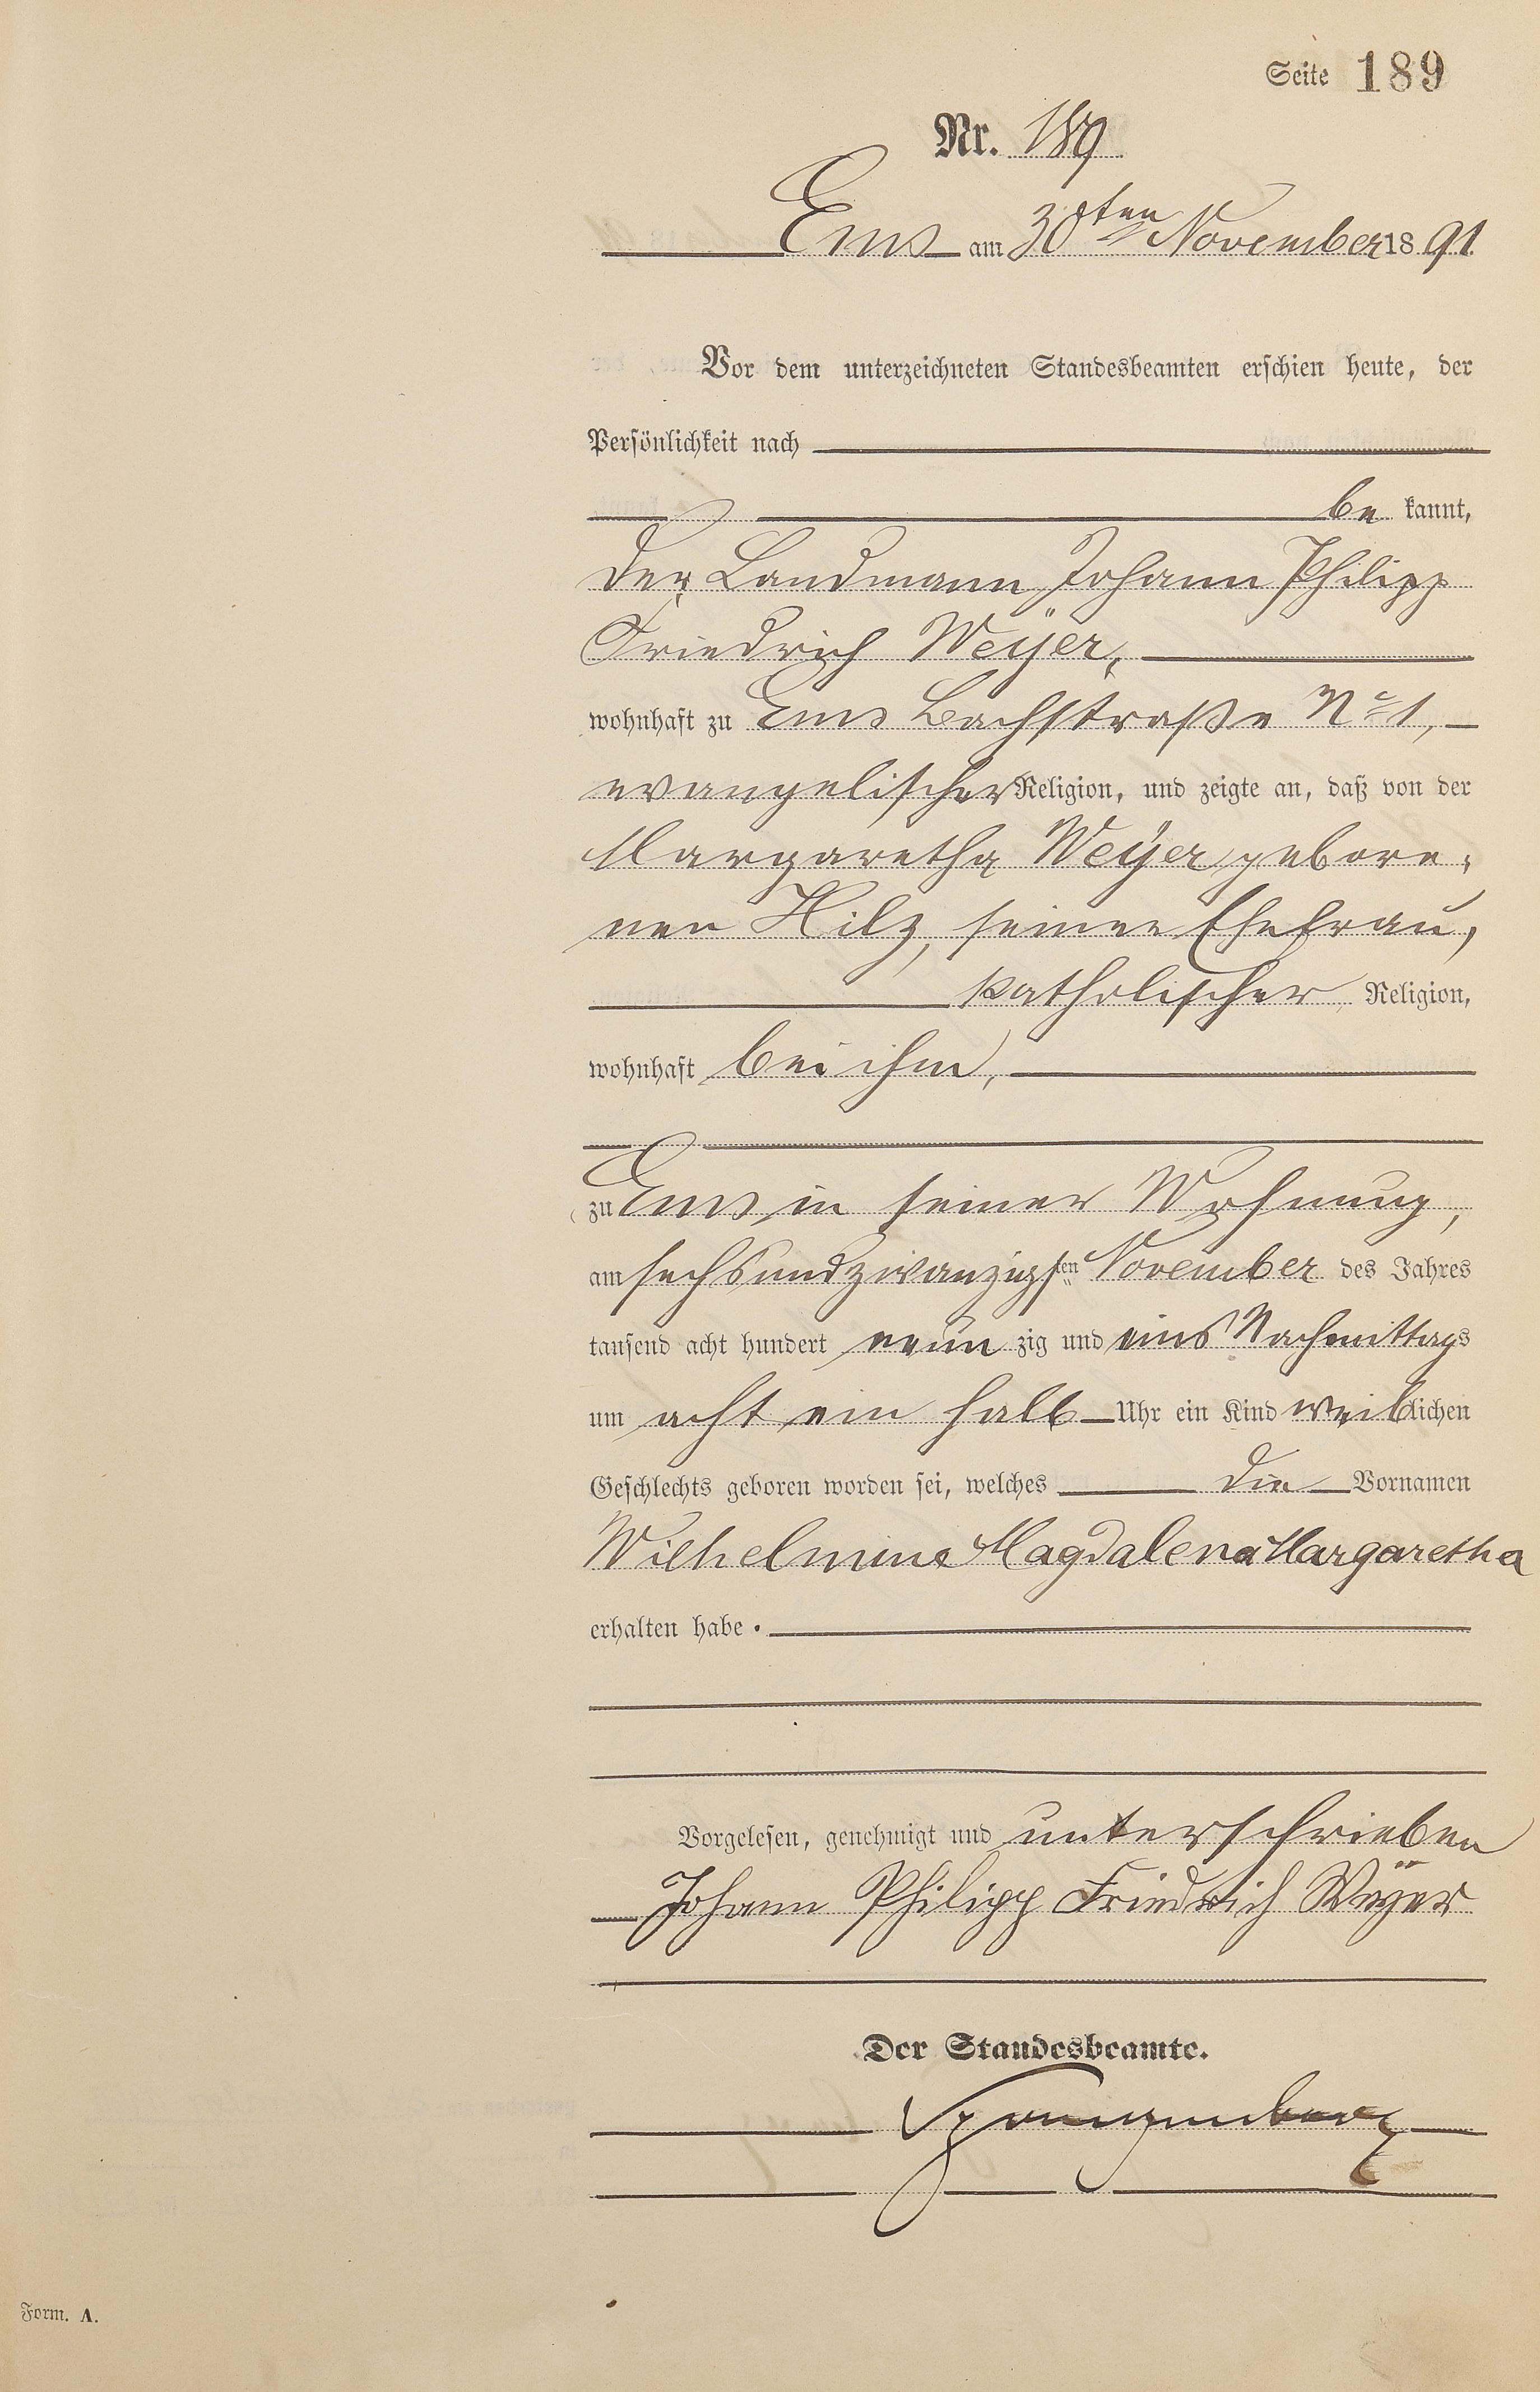 Seite 189
Nr. 189
Ems am 30ten November 1891.
Vor dem unterzeichneten Standesbeamten erschien heute, der
Persönlichkeit nach
be kannt,
der Landmann Johann Philipp
Friedrich Weÿer,
wohnhaft zu Ems Bachstraße No 1,
evangelischer Religion, und zeigte an, daß von der
Margaretha Weÿer gebore-
nen Hilz, seiner Ehefrau,
katholischer Religion,
wohnhaft bei ihm,
zu Ems in seiner Wohnung,
am sechsundzwanzigsten November des Jahres
tausend acht hundert neun zig und eins Nachmittags
um acht ein halb Uhr ein Kind weiblichen
Geschlechts geboren worden sei, welches die Vornamen
Wilhelmine Magdalena Margaretha
erhalten habe.
Vorgelesen, genehmigt und unterschrieben
Johann Philipp Friedrich Weÿer
Der Standesbeamte.
Spangenberg
Form. A.